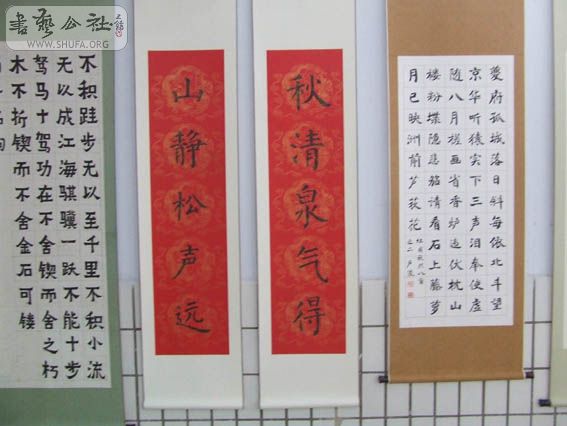 書藝公社
WWW.SHUFA.ORG
夔府孤城落日斜每依北斗望
京华听猿实下三声泪奉使虚
随八月槎画省香炉违伏枕山
楼粉堞隐悲笳请看石上藤萝
月已映洲前芦荻花
杜甫秋兴八首
之二
秋清泉气得
山静松声远
不积跬步无以至千里不积小流
无以成江海骐骥一跃不能十步
驽马十驾功在不舍锲而舍之朽
木不折锲而不舍金石可镂